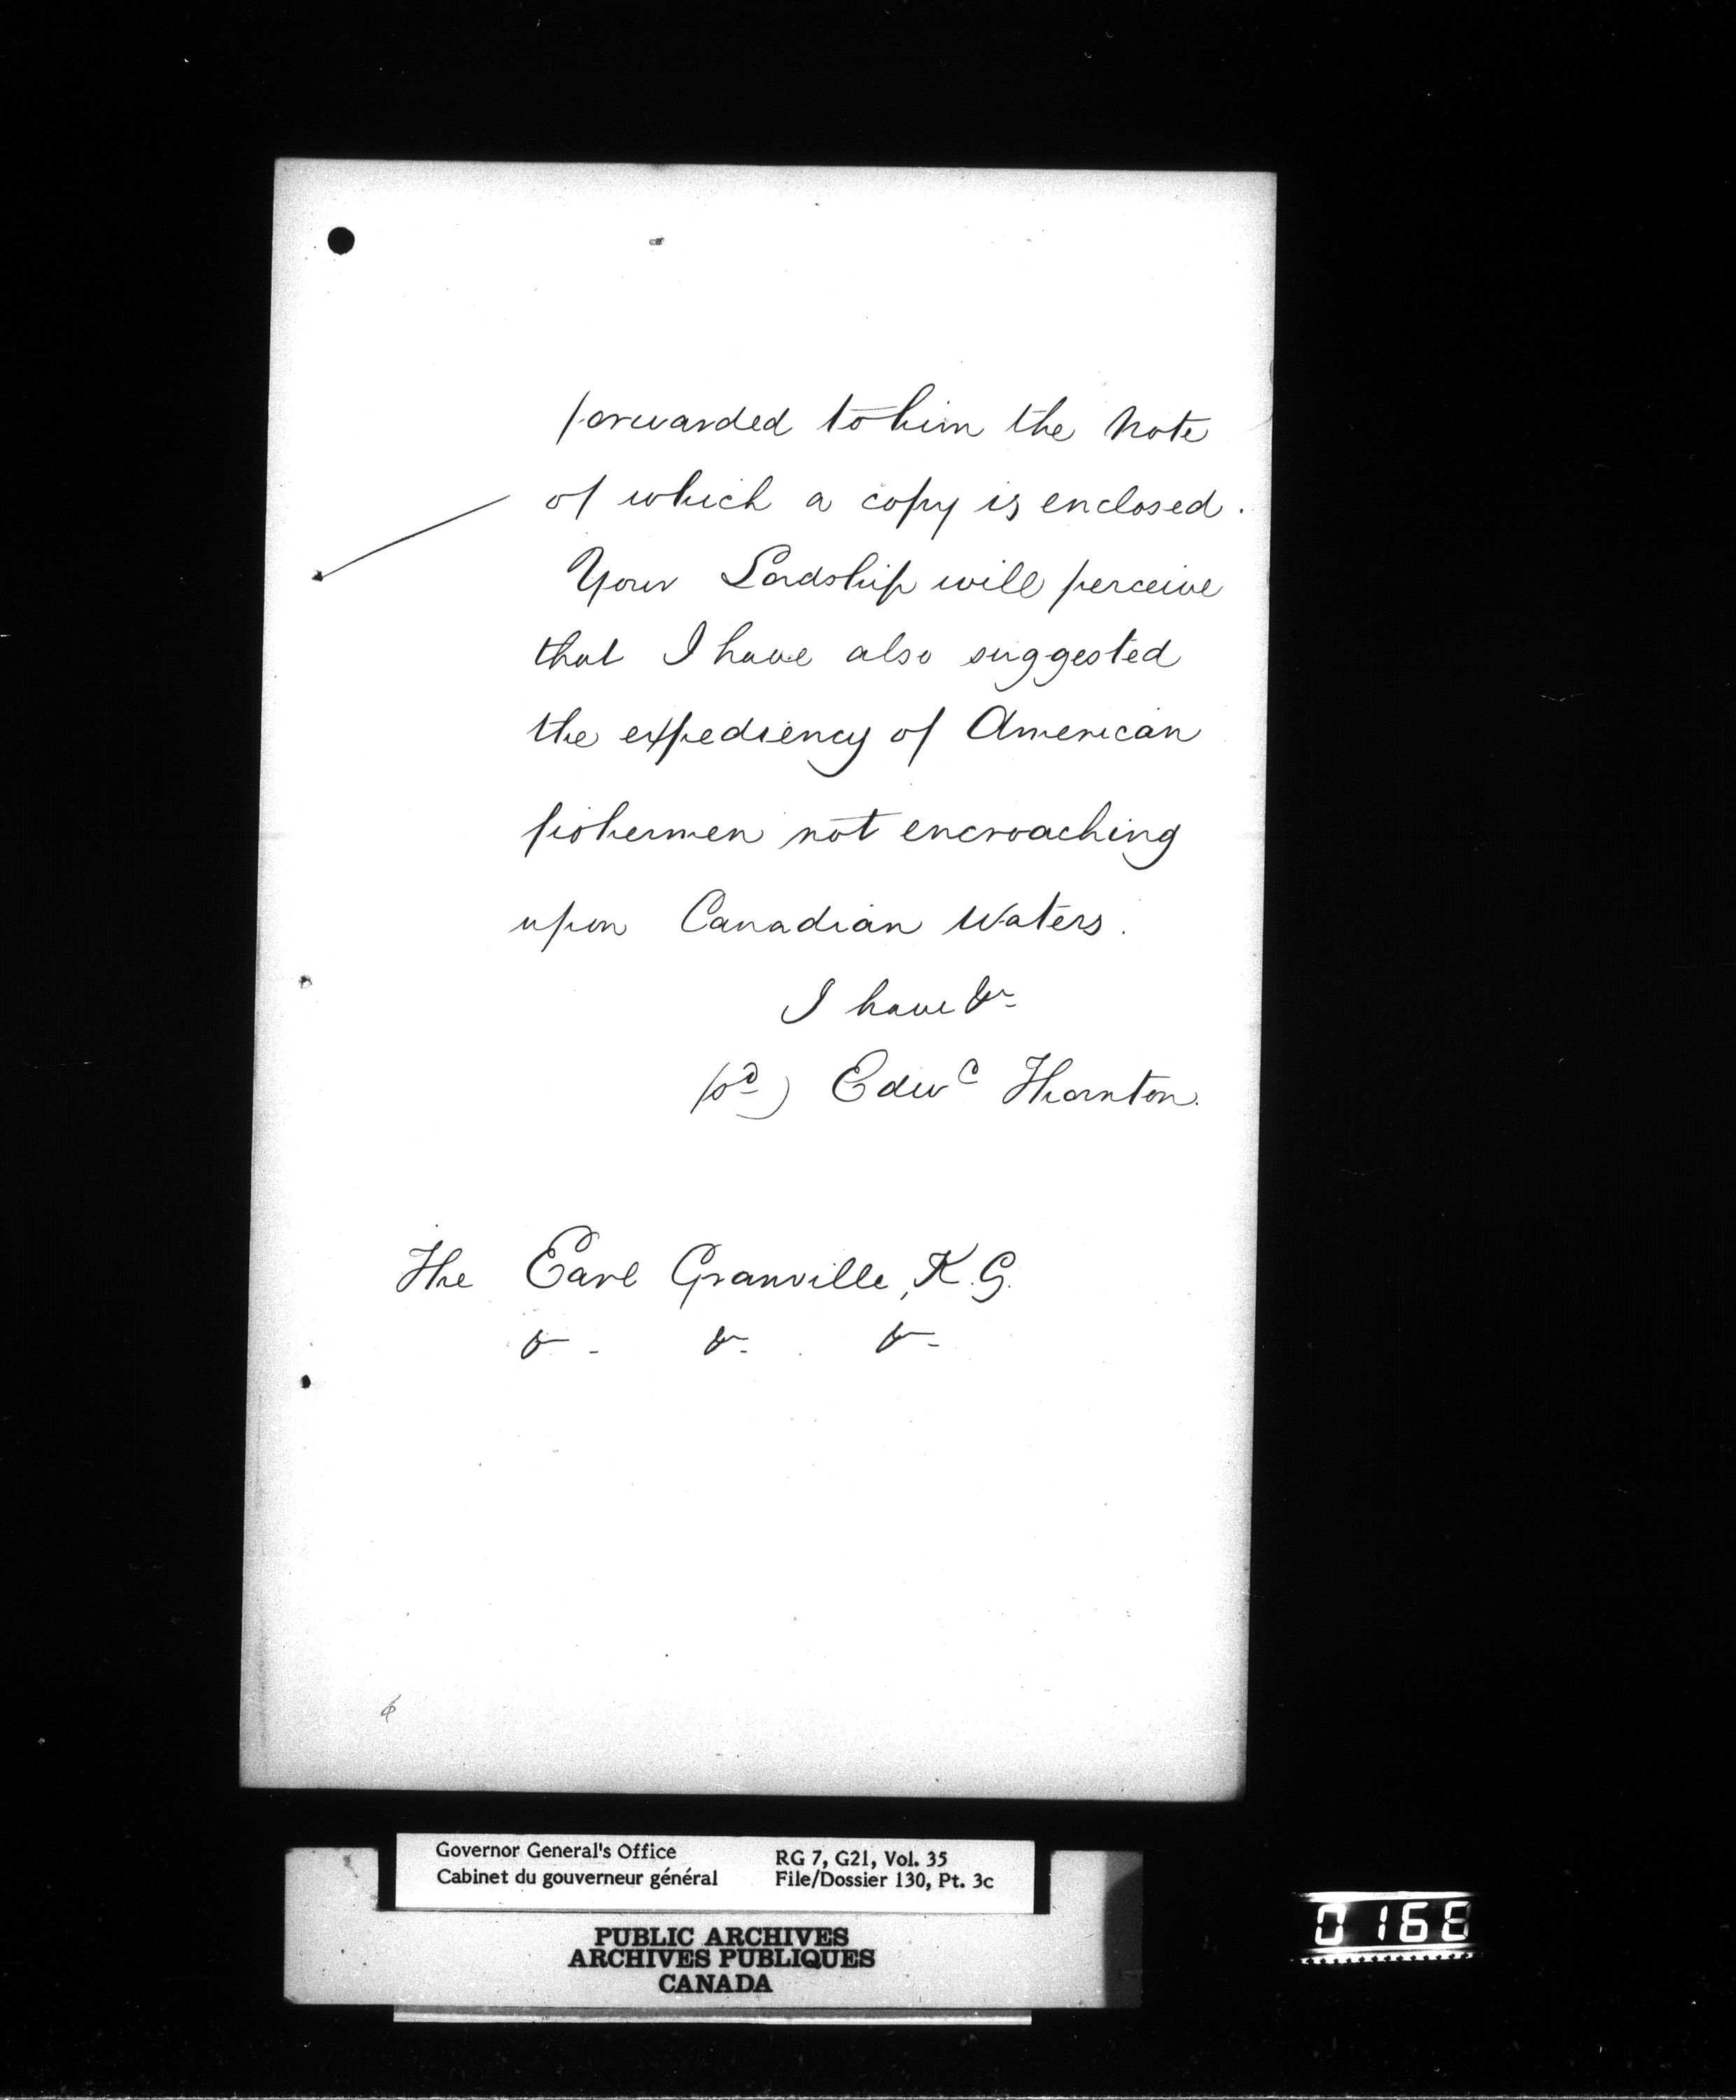 forwarded to him the Note
of which a copy is enclosed.
Your Lordship will perceive
that I have also suggested
the expediency of American
fishermen not encroaching
upon Canadian Waters.
I have &c
(sd) Edwd Thornton.
The Earl Granville, K.G.
&c &c &c
Governor General's Office
Cabinet du gouverneur général
RG 7, G21, Vol. 35
File/Dossier 130, Pt. 3c
PUBLIC ARCHIVES
ARCHIVES PUBLIQUES
CANADA